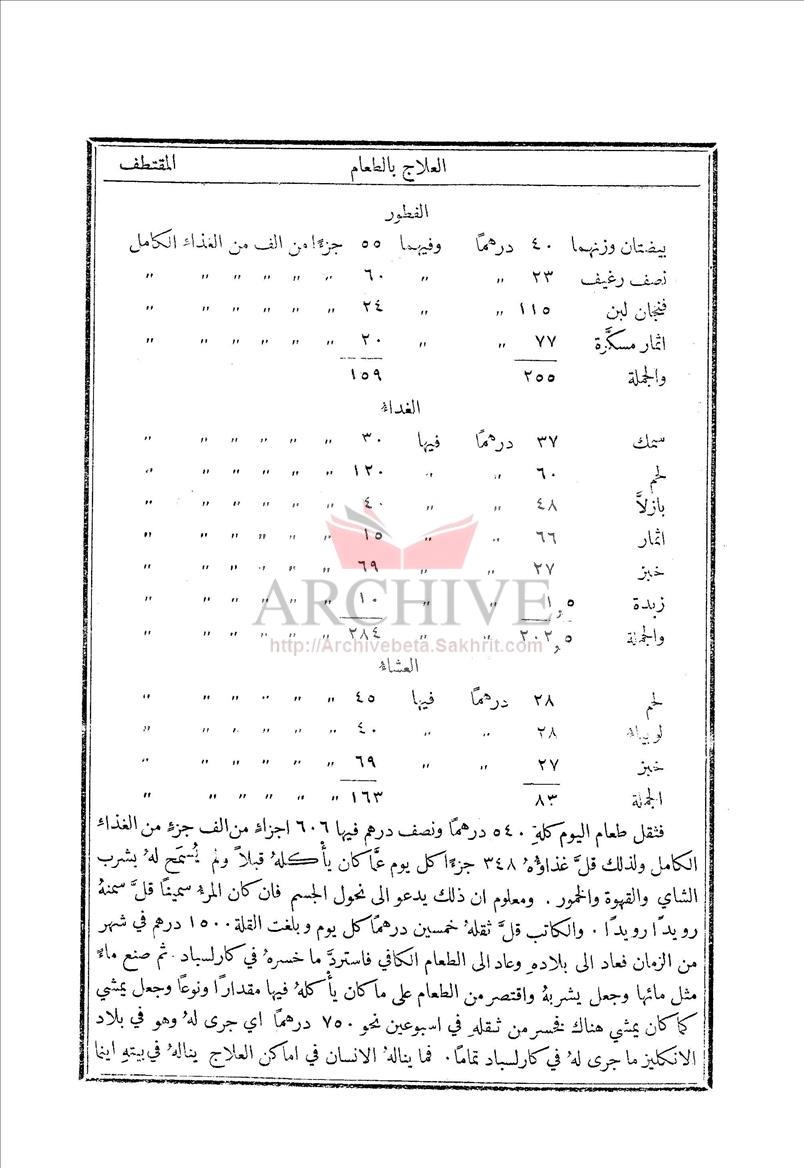 العلاج بالطعام المقتطف
الفطور
بيضتان وزنهما ٤٠ درهمًا وفيهما ٥٥ جزءًا من الف من الغذاء الكامل
نصف رغيف ٢٣ " " ٦٠ " " " " " "
فنجان لبن ١١٥ " " ٢٤ " " " " " "
اثمار مسكَّرة ٧٧ " " ٢٠ " " " " " "
والجملة ٢٥٥ ١٥٩
الغداء
سمك ٣٧ درهمًا فيها ٣٠ " " " " " "
لحم ٦٠ " " ١٢٠ " " " " " "
بازلاَّ ٤٨ " " ٤٠ " " " " " "
اثمار ٦٦ " " ١٥ " " " " " "
خبز ٢٧ " " ٦٩ " " " " " "
زبدة ١,٥ " " ١٠ " " " " " "
والجملة ٢٠٢,٥ " " ٢٨٤ " " " " " "
العشاء
لحم ٢٨ درهمًا فيها ٤٥ " " " " " "
لوبياء ٢٨ " " ٤٠ " " " " " "
خبز ٢٧ " " ٦٩ " " " " " "
الجملة ٨٣ ١٦٣ " " " " " "
فثقل طعام اليوم كلهِ ٥٤٠ درهمًا ونصف درهم فيها ٦٠٦ اجزاء من الف جزءٍ من الغذاء
الكامل ولذلك قلَّ غذاؤهُ ٣٤٨ جزءًا كل يوم عمَّا كان يأكلهُ قبلاً ولم يُسمَح لهُ بشرب
الشاي والقهوة والخمور . ومعلوم ان ذلك يدعو الى نحول الجسم فان كان المرءُ سمينًا قلَّ سمنهُ
رويدًا رويدًا . والكاتب قلَّ ثقلهُ خمسين درهمًا كل يوم وبلغت القلة ١٥٠٠ درهم في شهر
من الزمان فعاد الى بلادهِ وعاد الى الطعام الكافي فاستردَّ ما خسرهُ في كارلسباد . ثم صنع ماءً
مثل مائها وجعل يشربهُ واقتصر من الطعام على ما كان يأكلهُ فيها مقدارًا ونوعًا وجعل يمشي
كما كان يمشي هناك فخسر من ثقلهِ في اسبوعين نحو ٧٥٠ درهمًا اي جرى لهُ وهو في بلاد
الانكليز ما جرى لهُ في كارلسباد تمامًا . فما ينالهُ الانسان في اماكن العلاج ينالهُ في بيتهِ اينما
ARCHIVE
http://Archivebeta.Sakhrit.com